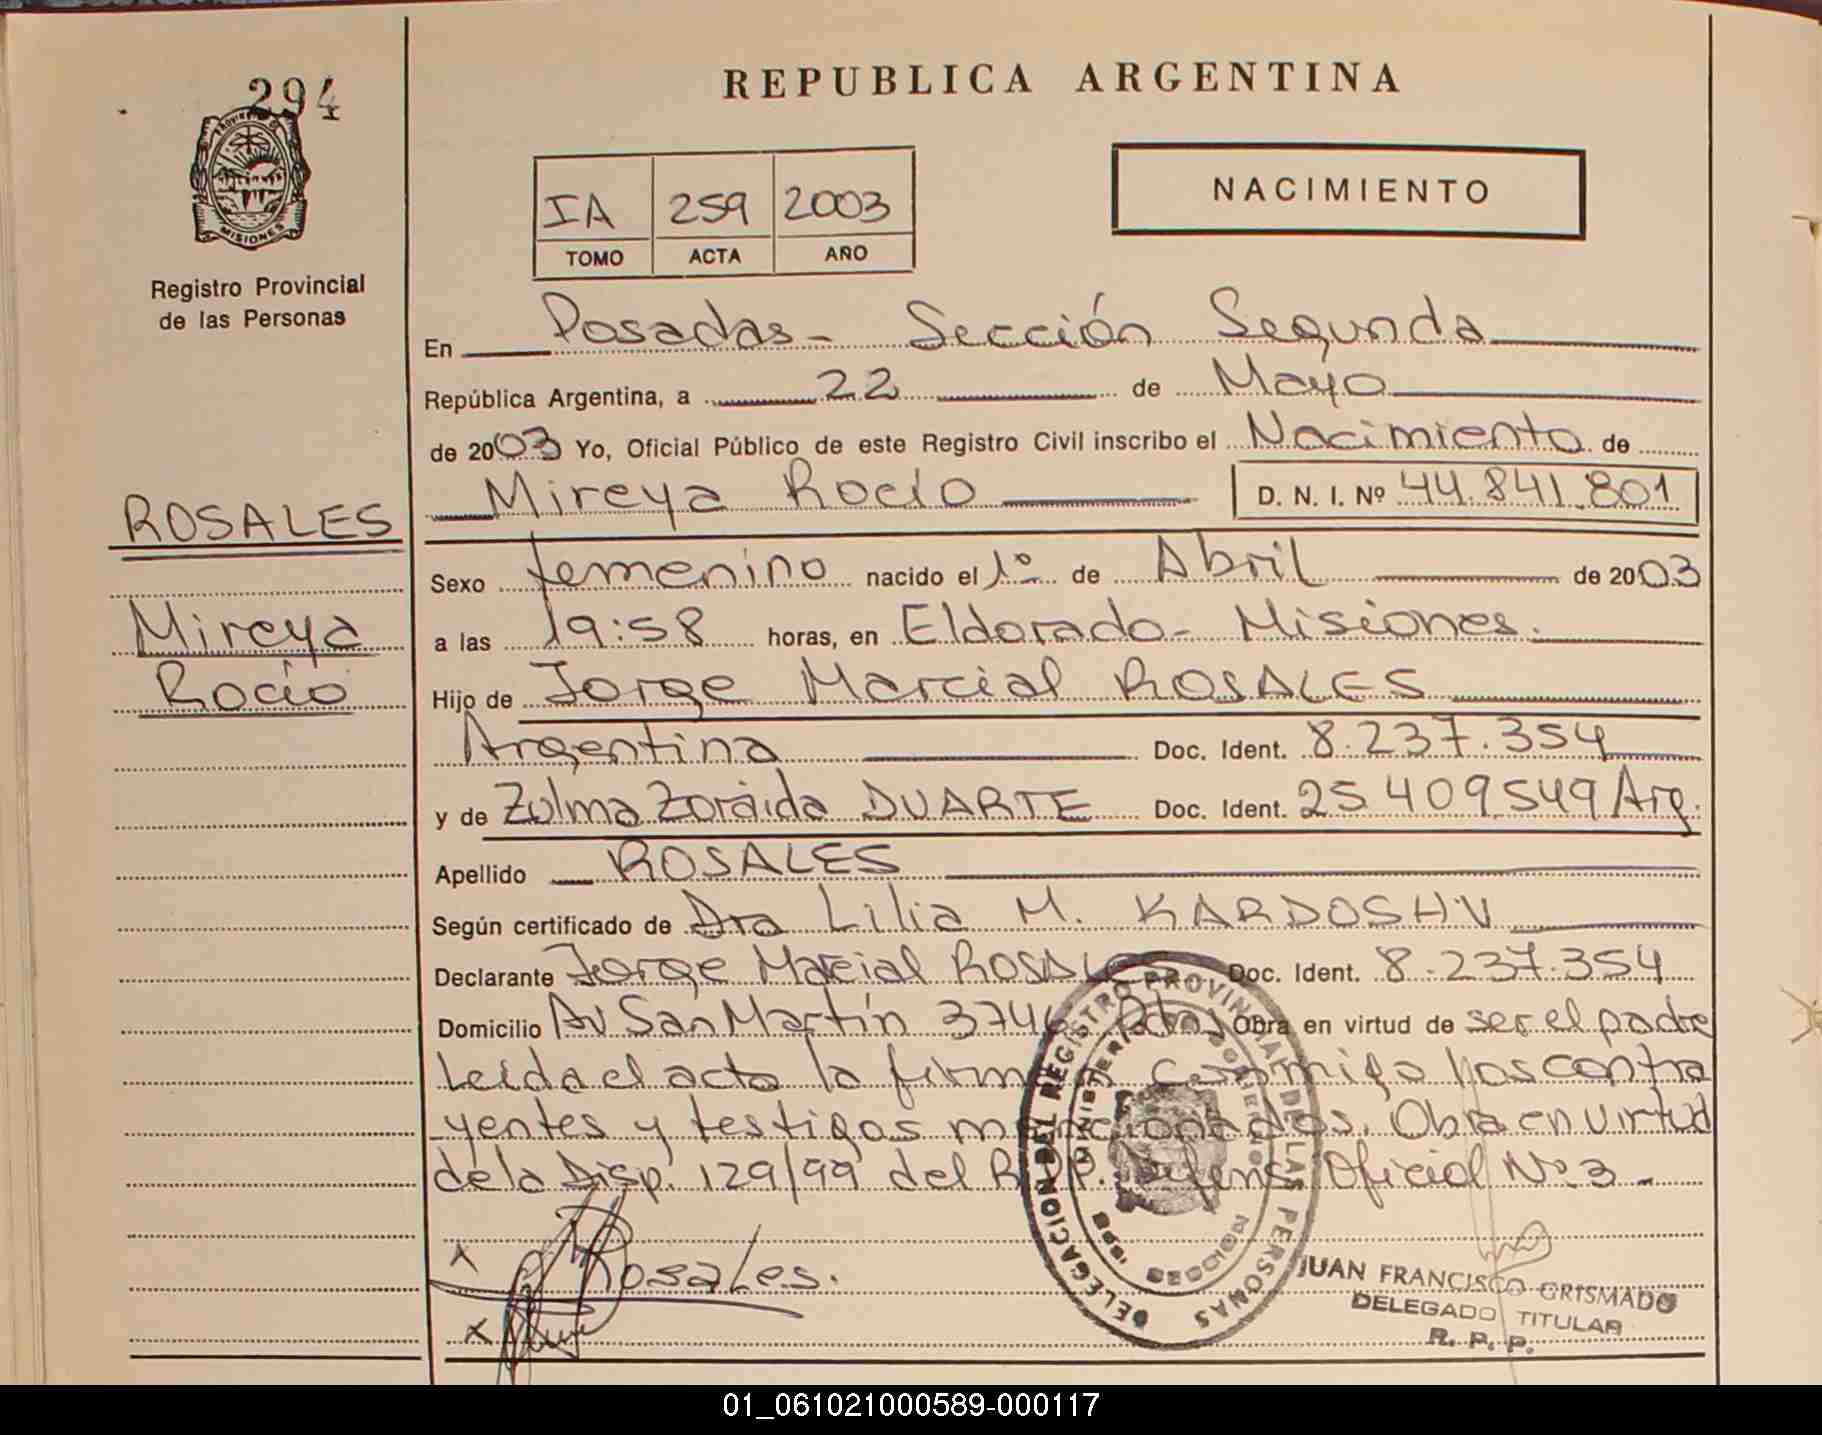 294
PROVINCIA DE
MISIONES
Registro Provincial
de las Personas
ROSALES
Mireya
Rocío
REPUBLICA ARGENTINA
IA 259 2003
TOMO ACTA AÑO
NACIMIENTO
En Posadas - Sección Segunda
República Argentina, a 22 de Mayo
de 2003 Yo, Oficial Público de este Registro Civil inscribo el Nacimiento de
Mireya Rocío D. N. I. Nº 44.841.801
Sexo femenino nacido el 1º de Abril de 2003
a las 19:58 horas, en Eldorado - Misiones.
Hijo de Jorge Marcial ROSALES
Argentina Doc. Ident. 8.237.354
y de Zulma Zoraida DUARTE Doc. Ident. 25.409.549 Arg.
Apellido ROSALES
Según certificado de Dra Lilia M. KARDOSHV
Declarante Jorge Marcial ROSALES Doc. Ident. 8.237.354
Domicilio Av San Martín 3746 Obra en virtud de ser el padre
Leída el acta la firman conmigo los contra
yentes y testigos mencionados. Obra en virtud
de la Disp. 129/99 del R.P.P. Defens. Oficial Nº 3 -
x Rosales.
x
DELEGACION DEL REGISTRO PROVINCIAL DE LAS PERSONAS
MINISTERIO GOBIERNO
MISIONES
JUAN FRANCISCO GRISMADO
DELEGADO TITULAR
R. P. P.
01_061021000589-000117